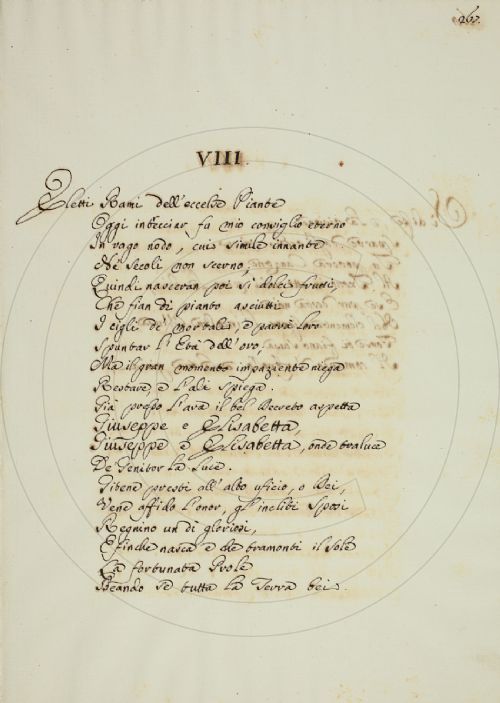 267.
VIII.
Eletti Rami dell'eccelse Piante
Oggi intrecciar fu mio consiglio eterno
In vago nodo, cui simile innante
Ne' secoli non scerno,
Quindi nasceran poi sì dolci frutti,
Che fian di pianto asciutti
I cigli de' mortali, e parrà loro
Spuntar l'Età dell'oro;
Ma il gran momento impaziente niega
Restare, e l'ali spiega.
Già presso l'ara il bel Decreto aspetta
Giuseppe e Elisabetta,
Giuseppe e Elisabetta, onde traluce
De' Genitor la Luce.
Gitene presti all'alto uficio, o Dei,
Vene affido l'onor, gl'incliti Sposi
Regnino un dì gloriosi,
E finche nasca e che tramonti il Sole
La fortunata Prole
Beando se tutta la Terra bei.